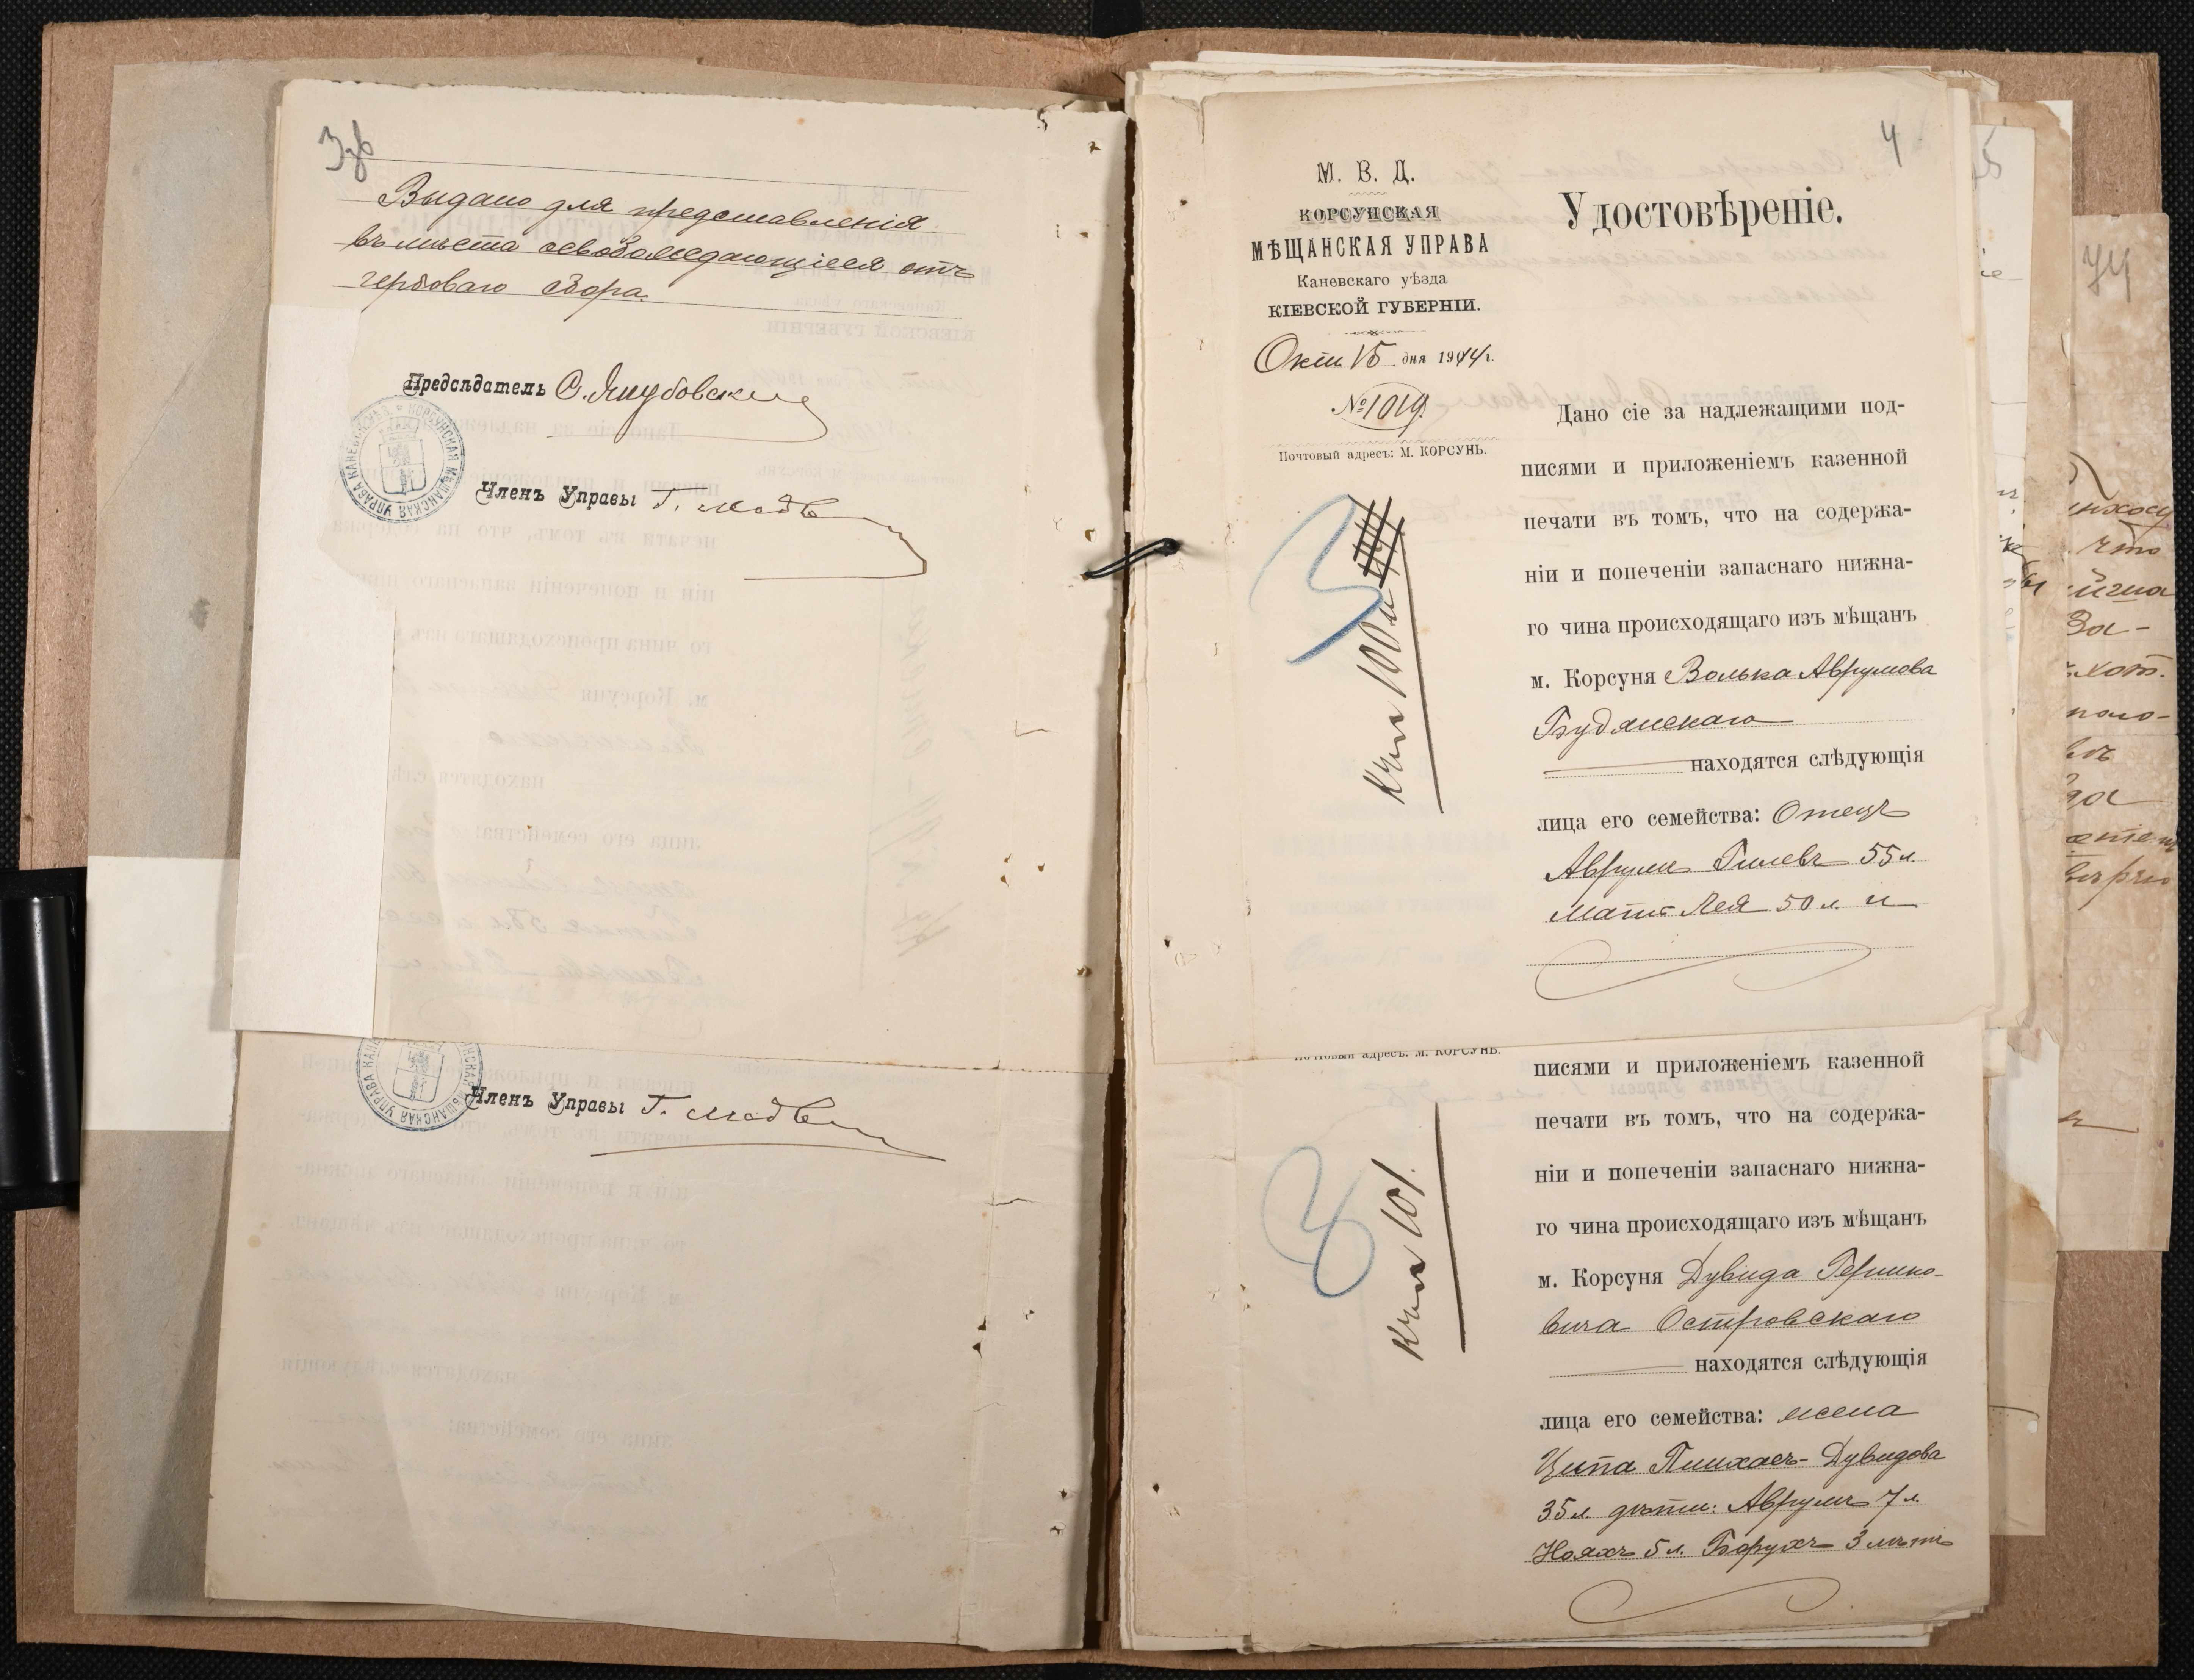 Выдано для представленія
въ мѣста освобождающіеся отъ
гербоваго сбора.
Предсѣдатель С. Якубовскій
КОРСУНСКАЯ МѢЩАНСКАЯ УПРАВА
Членъ Управы Г.
Членъ Управы Г.
4
М. В. Д.
КОРСУНСКАЯ
МѢЩАНСКАЯ УПРАВА
Каневскаго уѣзда
КІЕВСКОЙ ГУБЕРНІИ.
Окт. 15 дня 1914 г.
№ 1019.
Почтовый адресъ: М. КОРСУНЬ.
Удостовѣреніе.
Дано сіе за надлежащими под-
писями и приложеніемъ казенной
печати въ томъ, что на содержа-
ніи и попеченіи запаснаго нижна-
го чина происходящаго изъ мѣщанъ
м. Корсуня Волька Аврумова
Будянскаго
находятся слѣдующія
лица его семейства: Отецъ
Аврумъ Гилевъ 55 л.
Мать Лея 50 л. и
3
100
Почтовый адресъ: М. КОРСУНЬ.
писями и приложеніемъ казенной
печати въ томъ, что на содержа-
ніи и попеченіи запаснаго нижна-
го чина происходящаго изъ мѣщанъ
м. Корсуня Дувида Гершко-
вича Островскаго
находятся слѣдующія
лица его семейства: жена
Ципа Пинхасъ-Дувидова
35 л. дѣти: Аврумъ 7 л.
Ноахъ 5 л. Борухъ 3 лѣтъ
101.